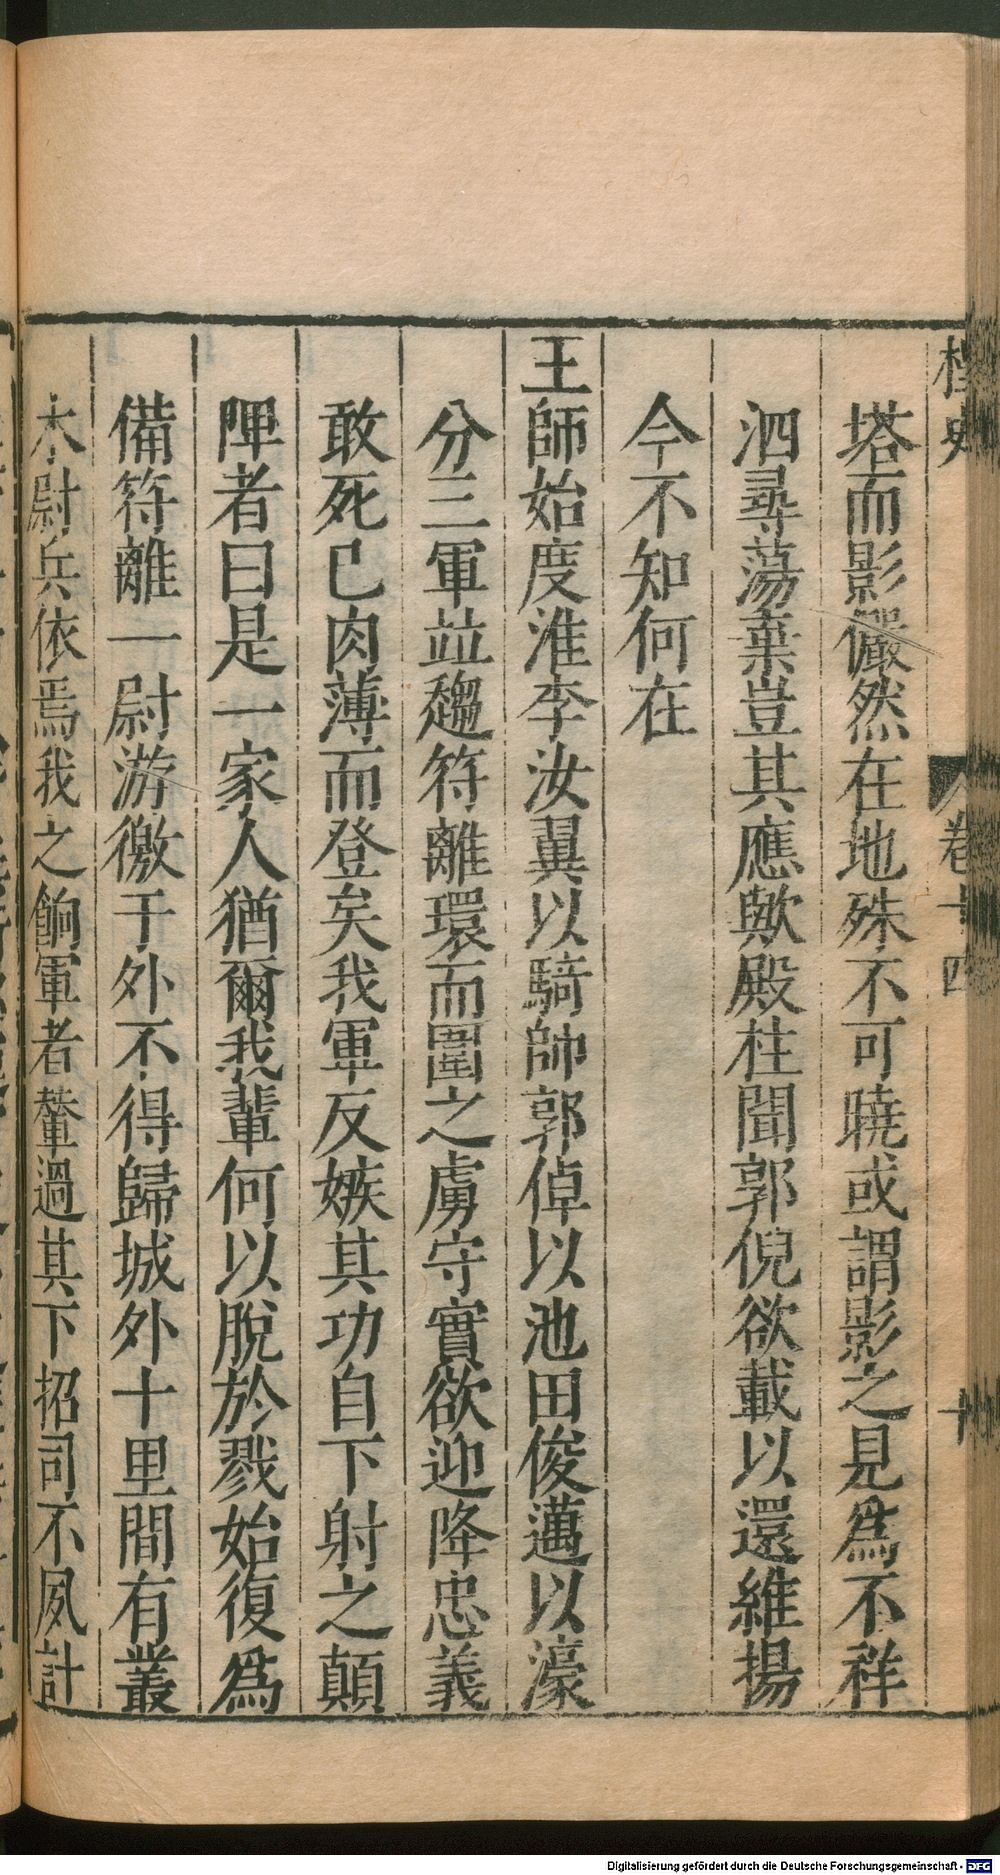 桯史
卷十四
十
塔而影儼然在地殊不可曉或謂影之見爲不祥
泗尋蕩棄豈其應歟殿柱聞郭倪欲載以還維揚
今不知何在
王師始度淮李汝翼以騎帥郭倬以池田俊邁以濠
分三軍竝趨符離環而圍之虜守實欲迎降忠義
敢死已肉薄而登矣我軍反嫉其功自下射之顛
陴者曰是一家人猶爾我輩何以脫於戮始復爲
備符離一尉游徼于外不得歸城外十里間有叢
木尉兵依焉我之餉軍者輦過其下招司不夙計
Digitalisierung gefördert durch die Deutsche Forschungsgemeinschaft - DFG